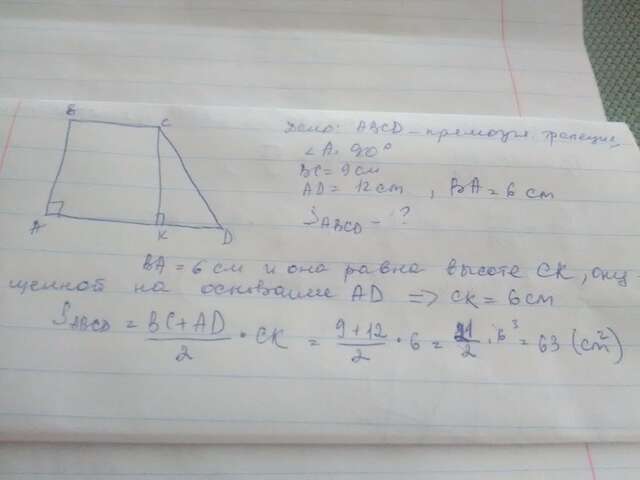 B C
A K D
Дано: ABCD - прямоуг. трапеция,
∠A = 90°
BC = 9 см
AD = 12 cm , BA = 6 cm
S_ABCD - ?
BA = 6 см и она равна высоте CK, опу-
щенной на основание AD => CK = 6 см
S_ABCD = (BC + AD)/2 · CK = (9 + 12)/2 · 6 = 21/2 · 6³ = 63 (cm²)